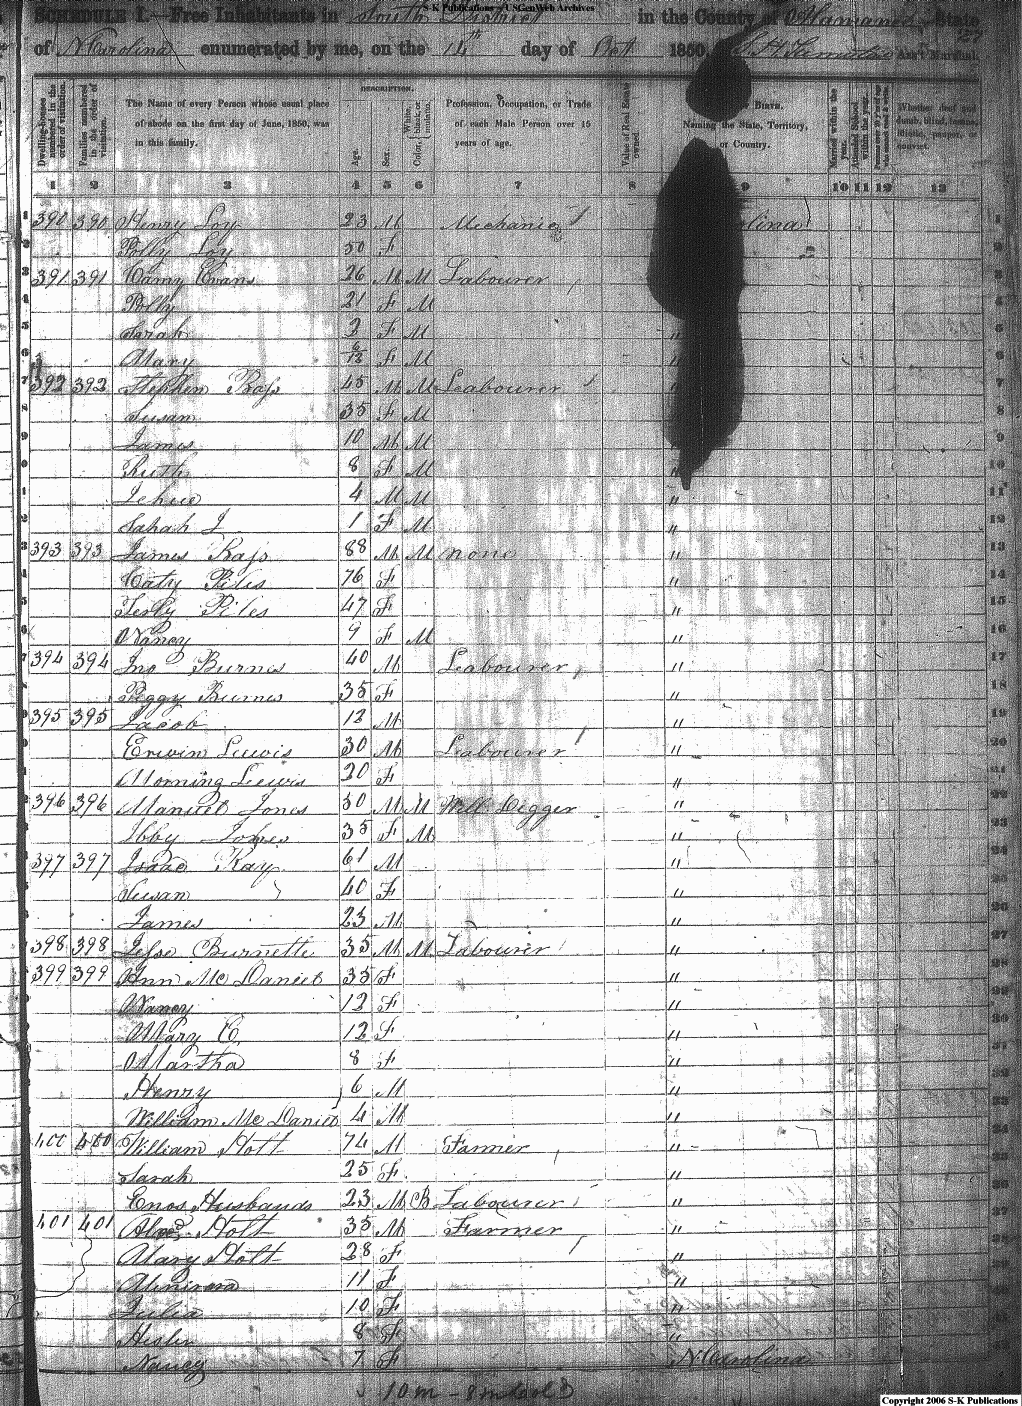 S-K Publications / USGenWeb Archives
SCHEDULE I.—Free Inhabitants in South District in the County of Alamance State
of N Carolina enumerated by me, on the 14th day of Oct 1850. Ass't Marshal.
Dwelling-houses numbered in the order of visitation.
Families numbered in the order of visitation.
The Name of every Person whose usual place of abode on the first day of June, 1850, was in this family.
DESCRIPTION.
Age.
Sex.
White, black, or mulatto.
Color,
Profession, Occupation, or Trade of each Male Person over 15 years of age.
Value of Real Estate owned
Birth.
Naming the State, Territory, or Country.
Married within the year.
Whether deaf and dumb, blind, insane, idiotic, pauper, or convict.
1 2 3 4 5 6 7 8 9 10 11 12 13
1 390 390 Henry Loy 23 M Mechanic olina 1
2 Polly Loy 50 F 2
3 391 391 Evans 26 M M Labourer 3
4 Polly 21 F M 4
5 Sarah 2 F M " 5
6 Mary 6/12 F M " 6
7 392 392 Stephen 45 M M Leabourer " 7
8 Susan 35 F M " 8
9 James 10 M M " 9
Ruth 8 F M " 10
Jehue 4 M M " 11
Sahah J 1 F M " 12
393 393 James 88 M M none " 13
Caty Piles 76 F " 14
Piles 47 F " 15
Nancy 9 F M " 16
394 394 Jno Burnes 40 M Labourer " 17
Peggy Burnes 35 F " 18
395 395 Jacob 12 M " 19
Erwin Lewis 30 M Labourer " 20
Morning Lewis 20 F " 21
396 396 Manuel Jones 50 M M Well Digger " 22
Ibby Jones 35 F M " 23
397 397 Isaac Kay 61 M " 24
Susan 40 F " 25
James 23 M " 26
398 398 Jesse Burnette 35 M M Labourer " 27
399 399 Ann Mc Daniel 35 F " 28
Nancy 12 F " 29
Mary C. 12 F " 30
Martha 8 F " 31
Henry 6 M " 32
William Mc Daniel 4 M " 33
400 400 William Holt 74 M Farmer " 34
Sarah 25 F " 35
Enos Husbands 23 M B Labourer " 36
401 401 Holt 35 M Farmer " 37
Mary Holt 28 F " 38
11 F "
Julia 10 F "
8 F "
Nancy 7 F N Carolina
10 m - 8
Copyright 2006 S-K Publications